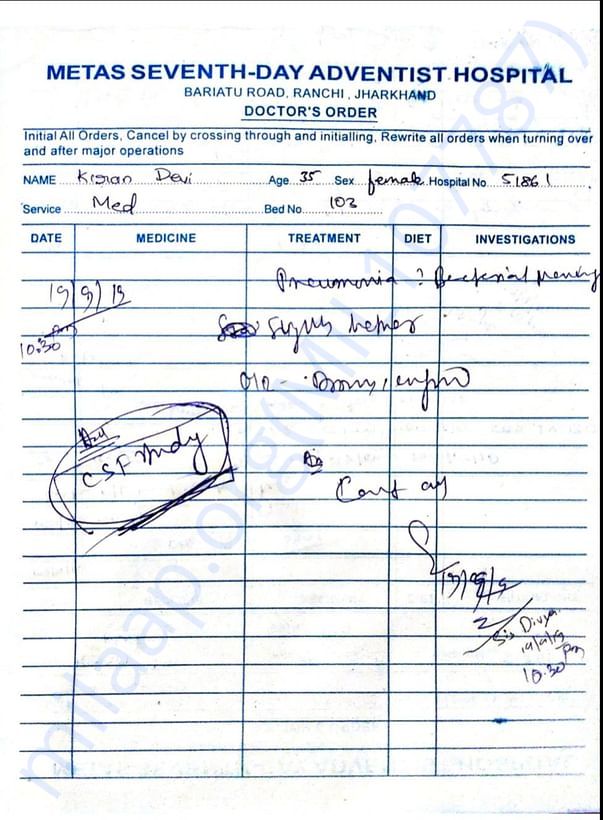 METAS SEVENTH-DAY ADVENTIST HOSPITAL
BARIATU ROAD, RANCHI, JHARKHAND
DOCTOR'S ORDER
Initial All Orders, Cancel by crossing through and initialling, Rewrite all orders when turning over
and after major operations
NAME Kiran Devi Age 35 Sex female Hospital No 51861
Service Med Bed No 103
DATE MEDICINE TREATMENT DIET INVESTIGATIONS
Pneumonia ?
19/9/19
10:30 pm
Adv
CSF study
Cont all
Sis Divya
19/9/19
10.30 pm
milaap.org(MIL107787)